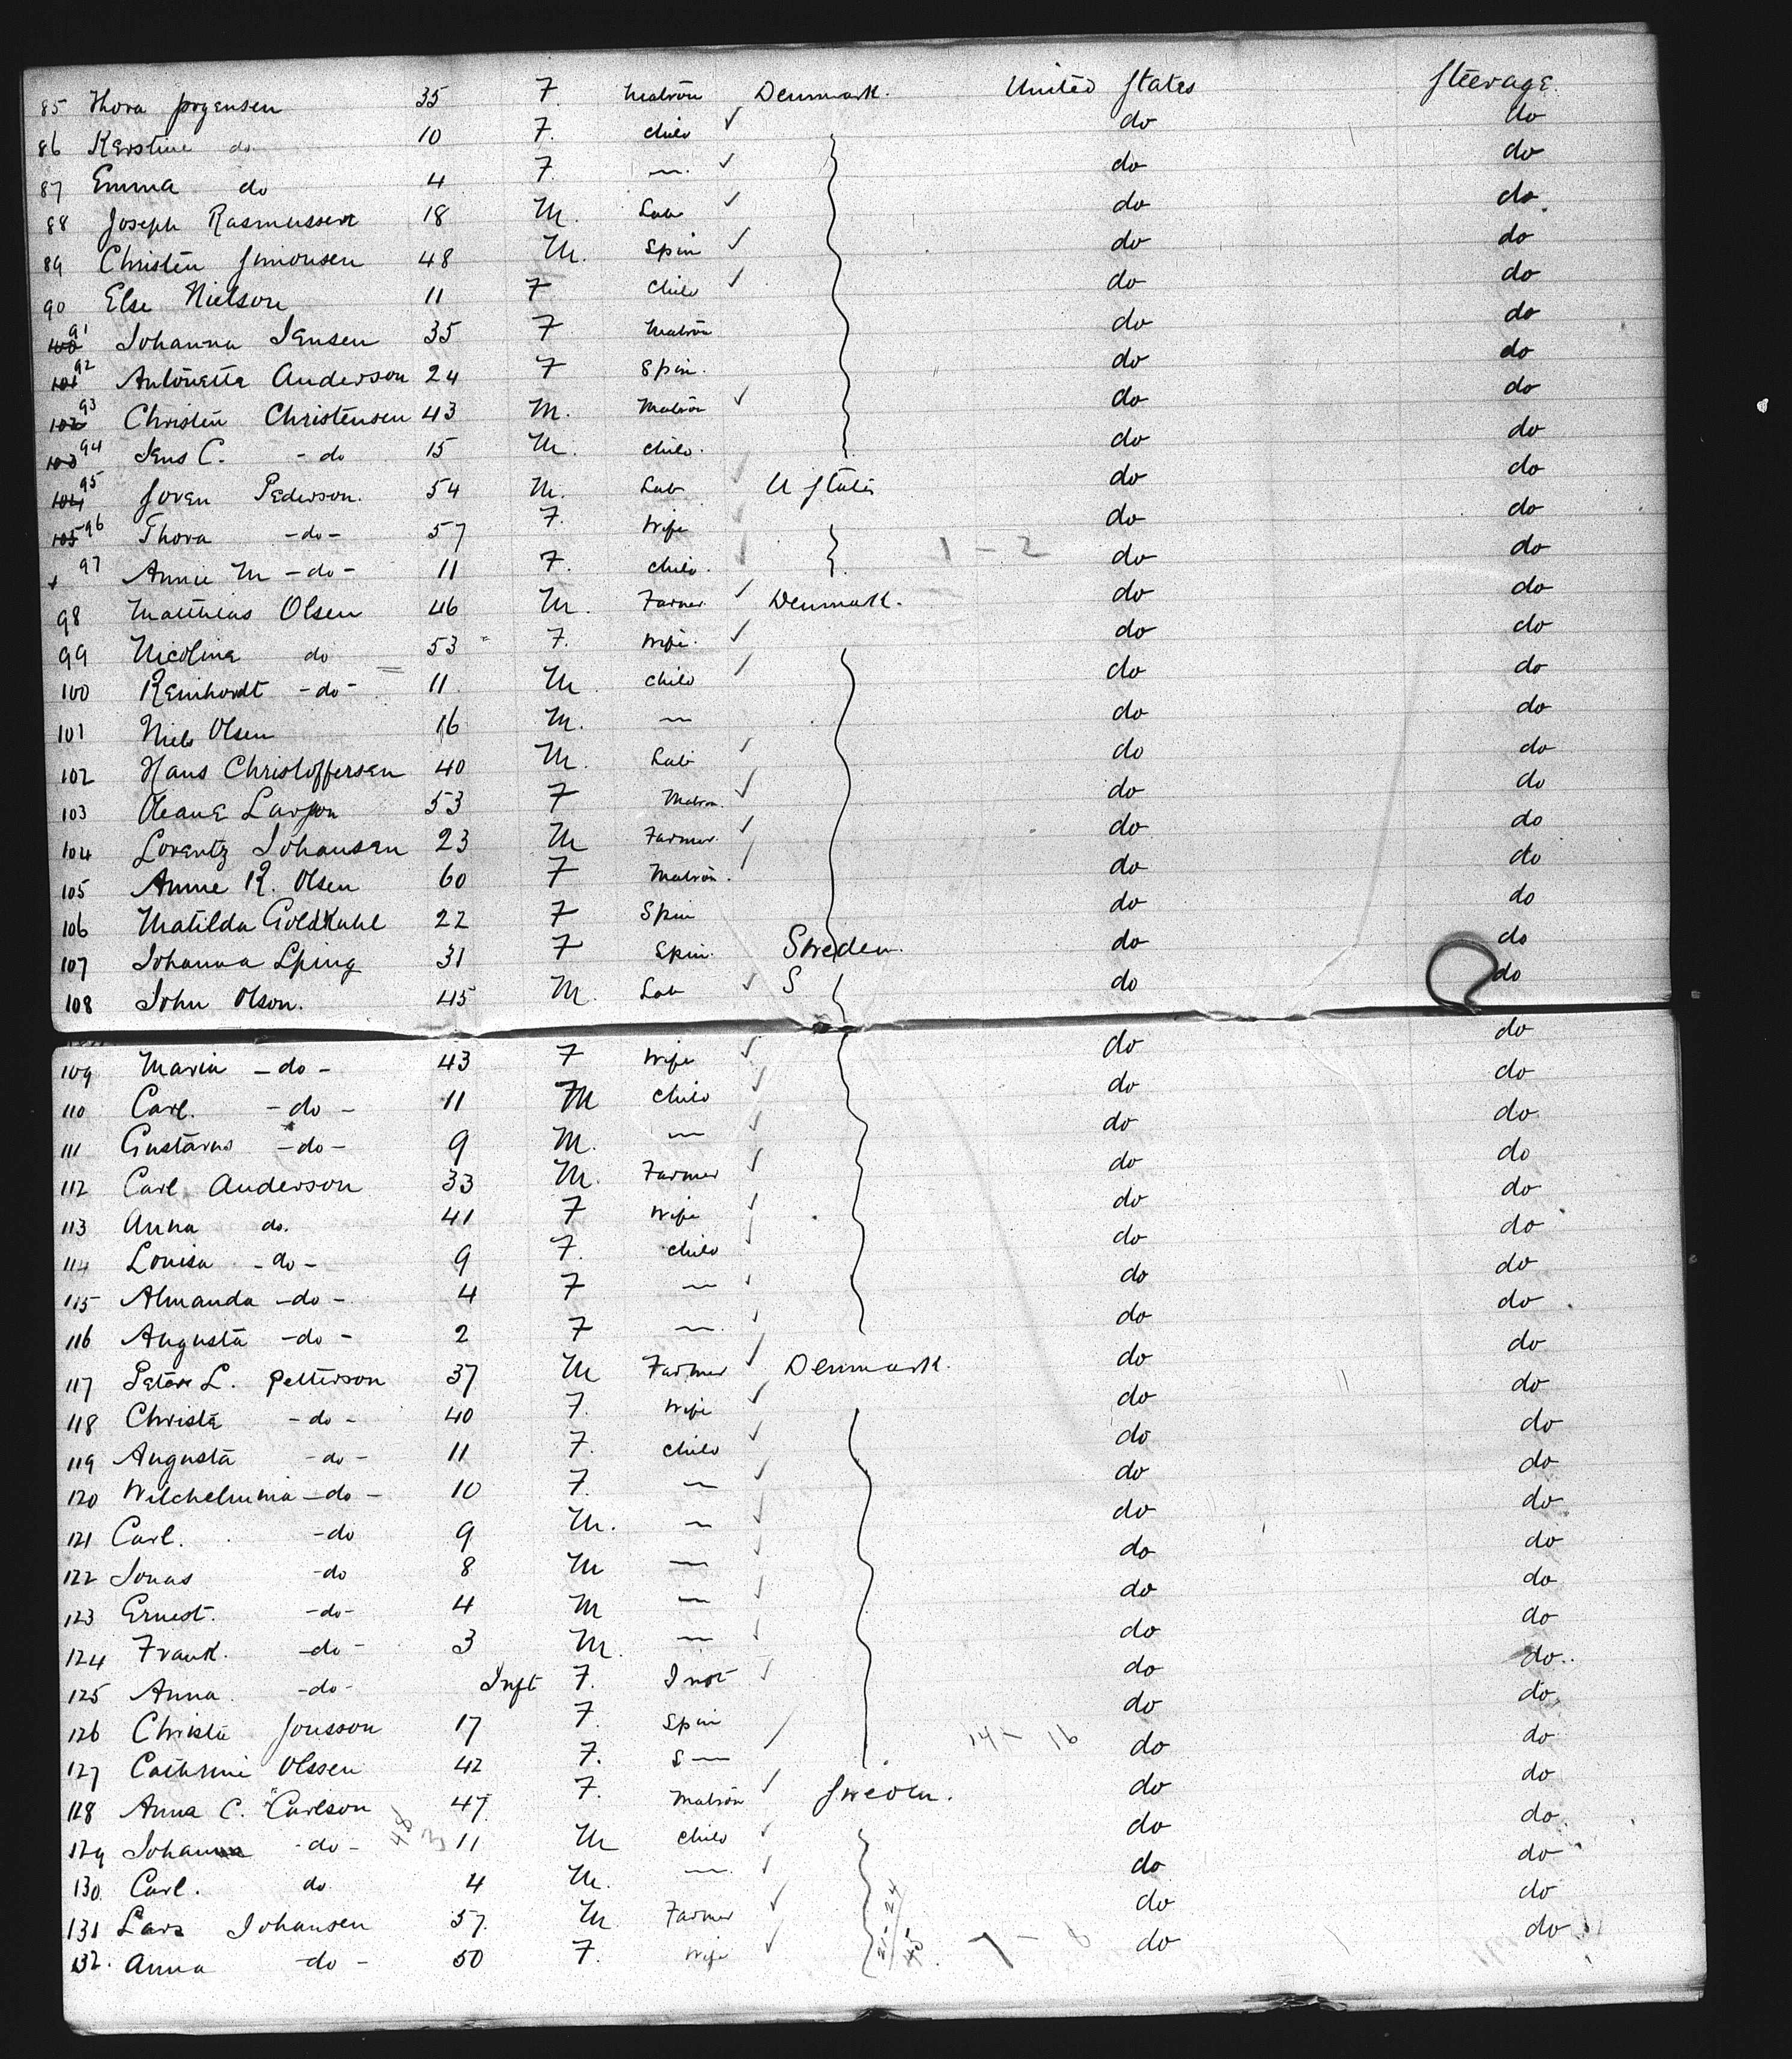 85 Thora Jorgensen 35 F. Matron Denmark. United States Steerage.
86 Kerstine do. 10 F. Child do do
87 Emma do 4 F. —. do do
88 Joseph Rasmussen 18 M. Lab do do.
89 Christen Simonsen 48 M. Spin do do
90 Else Nielson 11 F Child do do
100 91 Johanna Jensen 35 F Matron do do
101 92 Antonetta Anderson 24 F Spin. do do
102 93 Christen Christensen 43 M. Matron do do
103 94 Jens C. - do 15 M. Child. do do
104 95 Soren Pederson. 54 M. Lab U States do do
105 96 Thora - do - 57 F. Wife do do
97 Annie M - do - 11 F. Child. 1 - 2 do do
98 Matthias Olsen 46 M. Farmer Denmark. do do
99 Nicoline do 53 F. Wife. do do
100 Reinhardt - do - 11. M. Child do do
101 Niels Olsen 16 M. — do do
102 Hans Christoffersen 40 M. Lab do do
103 Oleane Larson 53 F Matron. do do
104 Lorentz Johansen 23 M Farmer. do do
105 Anne K. Olsen 60 F Matron. do do
106 Matilda Goldkuhl 22 F Spin do do
107 Johanna Lping 31 F Spin. Sweden. do do
108 John Olson. 45 M. Lab S do do
109 Maria - do - 43 F Wife do do
110 Carl. - do - 11 M Child do do
111 Gustavus - do - 9 M. — do do
112 Carl Anderson 33 M. Farmer do do
113 Anna do. 41 F Wife do do
114 Louisa - do - 9 F. Child do do
115 Almanda - do - 4 F — do do
116 Augusta - do - 2 F —. do do
117 Peter L. Petterson 37 M Farmer Denmark. do do
118 Christe - do - 40 F. Wife do do
119 Augusta - do - 11 F. Child do do
120 Wilchelmina - do - 10 F. — do do
121 Carl. - do 9 M. — do do
122 Jonas - do 8 M — do do
123 Ernest. - do - 4 M — do do
124 Frank. - do - 3 M. — do do
125 Anna. - do - Inft F. do do
126 Christe Jonsson 17 F. Spin do do
127 Cathrine Olssen 42 F. S — 14 - 16 do do
128 Anna C. Carlson 47 F. Matron Sweden. do do
129 Johan - do - 48 3 11 M Child do do
130. Carl. do 4 M. —. do do
131 Lars Johansen 57. M. Farmer do do
132. Anna - do - 50 F. Wife 21 - 24 45 7 - 8 do do